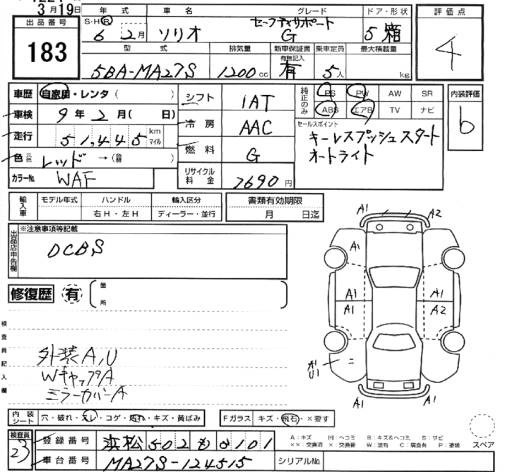 3月19日
出品番号
183
年式 車名 グレード ドア・形状 評価点
S・H・R 6年 2月 ソリオ セーフティサポート G 5 箱 4
型式 排気量 新車保証書 有無記入 乗車定員 最大積載量
5BA-MA27S 1200cc 有 5人 kg
車歴 自家用・レンタ( )
車検 9年 2月( 日)
走行 51,445 km マイル
色 レッド→(替)
カラーNo. WAF
シフト 1AT
冷房 AAC
燃料 G
リサイクル料金 7690円
純正のみ PS PW AW SR
ABS エアB TV ナビ
内装評価
b
セールスポイント
キーレスプッシュスタート
オートライト
輸入車 モデル年式 ハンドル 輸入区分
右H・左H ディーラー・並行
書類有効期限
月 日迄
出品店申告欄
※注意事項等記載
DCBS
修復歴 有 箇所
検査員記入欄
外装A,U
WキャップA
ミラーカバーA
A1 A2
A1
A1 A1 A1
A1 A2
A1
U1
A1
内装シート 穴・破れ・スレ・コゲ・汚れ・キズ・黄ばみ
Fガラス キズ・飛石・×要す
検査員
23
登録番号 浜松502も0101
車台番号 MA27S-124515
シリアルNo.
A:キズ U:ヘコミ B:キズ&ヘコミ S:サビ
××:交換済 ×:交換要 W:波有 C:腐食有 P:塗装
スペア